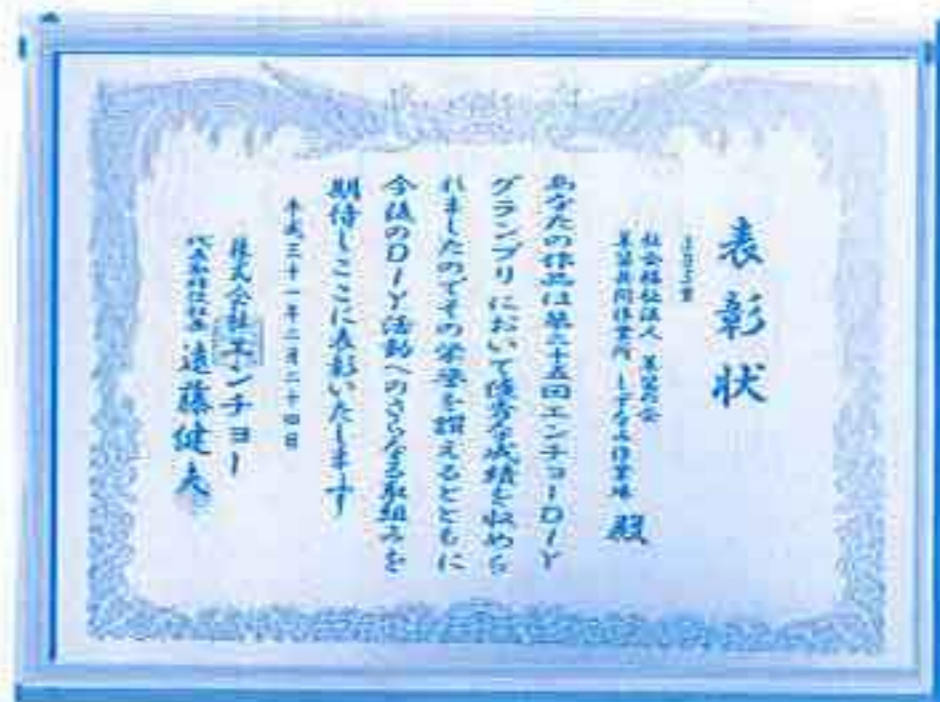 表彰状
社会福祉法人
殿
あなたの作品は第二十五回エンチョーDIY
グランプリにおいて優秀な成績を収めら
れましたのでその栄誉を讃えるとともに
今後のDIY活動へのさらなる取組みを
期待しここに表彰いたします
平成三十一年二月二十四日
株式会社エンチョー
代表取締役社長 遠藤健夫